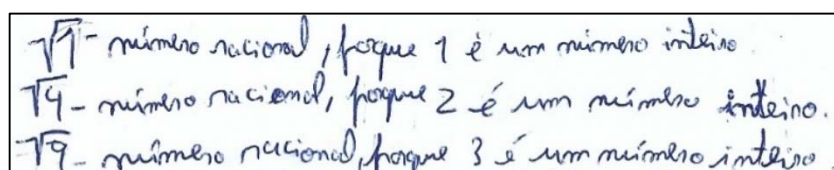 √1 - número racional, porque 1 é um número inteiro.
√4 - número racional, porque 2 é um número inteiro.
√9 - número racional, porque 3 é um número inteiro.